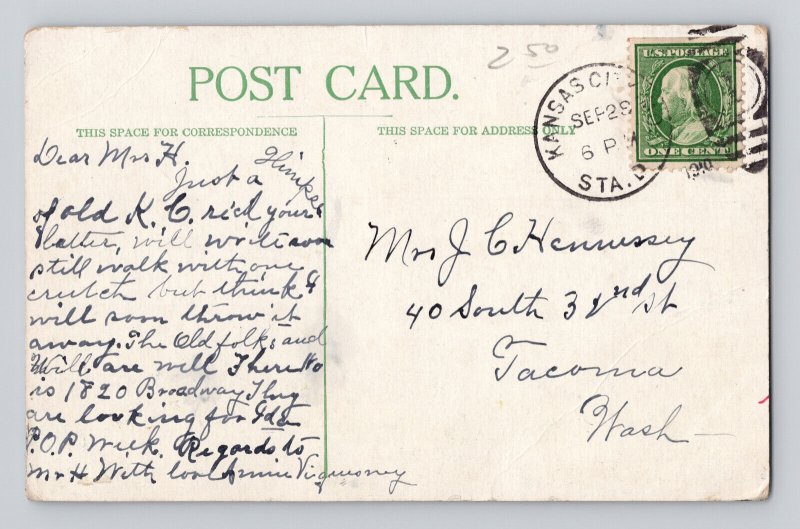 2 50
POST CARD.
THIS SPACE FOR CORRESPONDENCE
THIS SPACE FOR ADDRESS ONLY
U.S. POSTAGE
ONE CENT
KANSAS CITY
SEP 28
6 P.M
STA.
1910
Dear Mrs H.
Just a Glimpse
of old K. C. ricd your
latter, will write soon
still walk with one
crutch but think I
will soon throw it
away. The Old folks and
Will are well There No
is 1820 Broadway They
are looking for Ida
P.O.P. Week. Regards to
Mr H With love Annie
Mrs J C Hennessey
40 South 32nd st
Tacoma
Wash